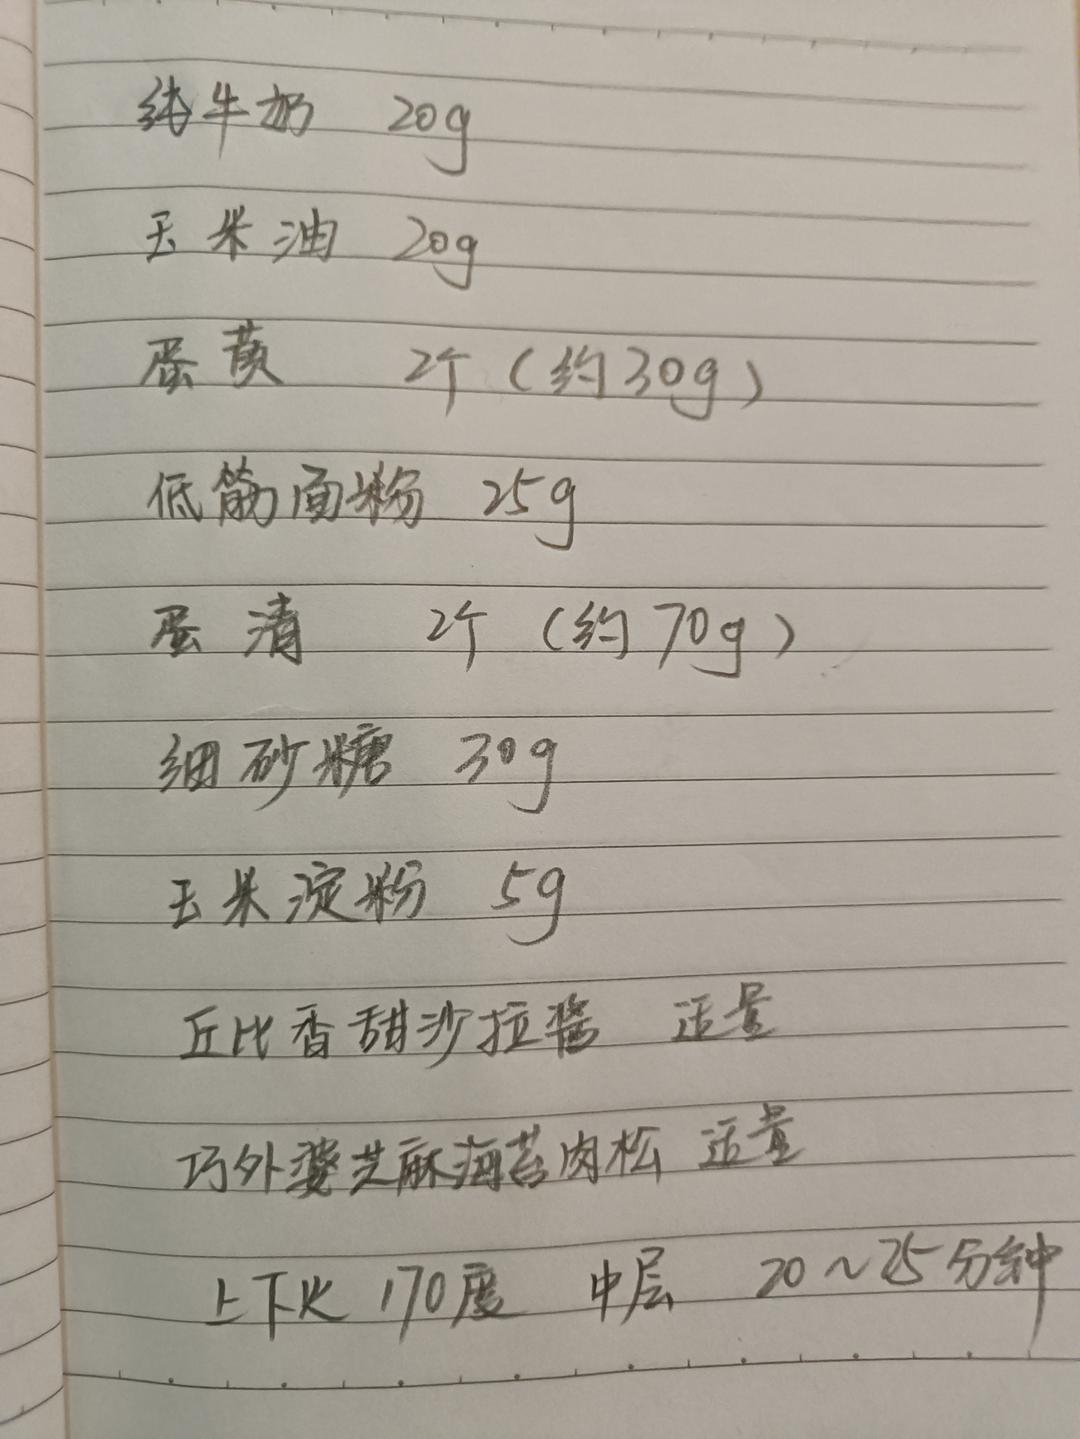 纯牛奶 20g
玉米油 20g
蛋黄 2个（约30g）
低筋面粉 25g
蛋清 2个（约70g）
细砂糖 30g
玉米淀粉 5g
丘比香甜沙拉酱 适量
巧外婆芝麻海苔肉松 适量
上下火 170度 中层 20～25分钟